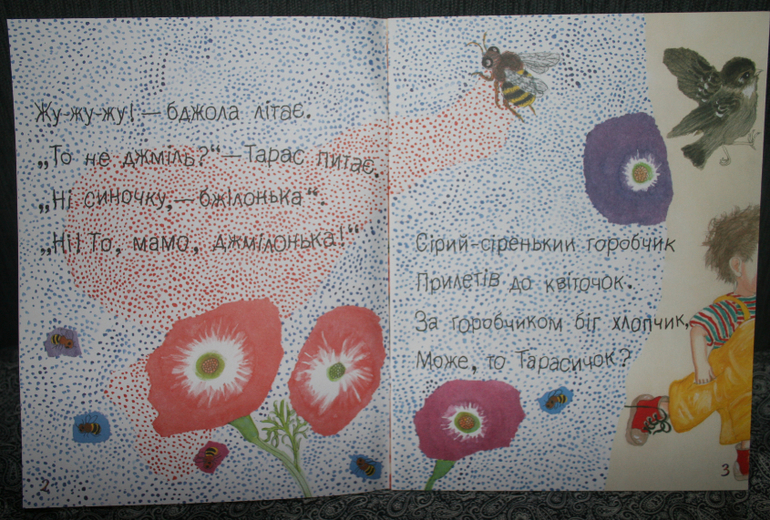 Жу-жу-жу! — бджола літає.
„То не джміль?“ — Тарас питає.
„Ні синочку, — бжілонька“.
„Ні! То, мамо, джмілонька!“
2
Сірий-сіренький горобчик
Прилетів до квіточок.
За горобчиком біг хлопчик,
Може, то Тарасичок?
3